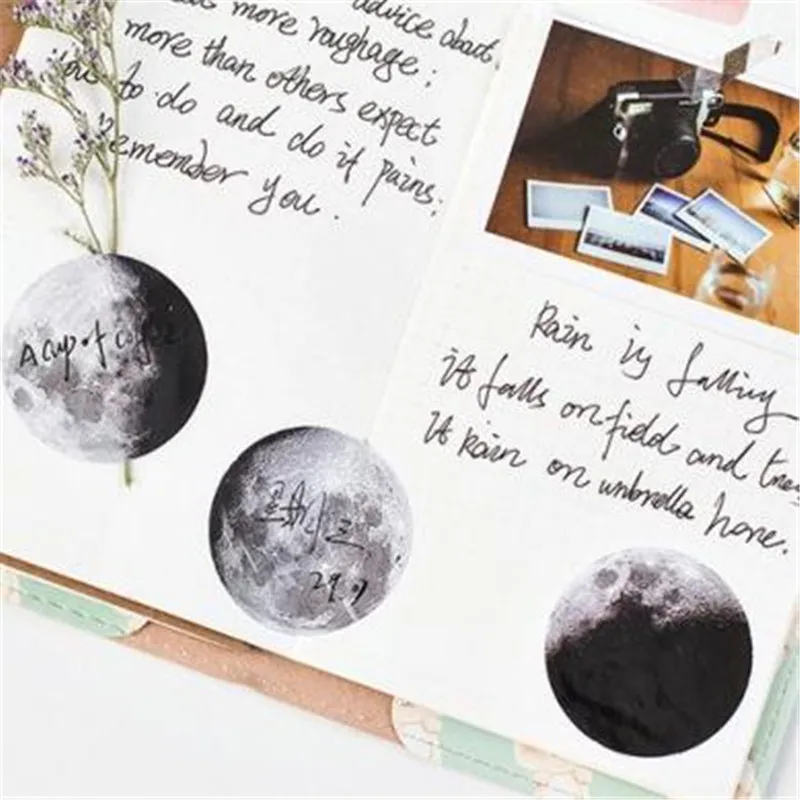 more roughage;
advice about
more than others expect
You to do and do it pains;
remember you.
A cup of coffee
星期三
Rain is falling
it falls on field and tree
It Rain on unbrella hore.